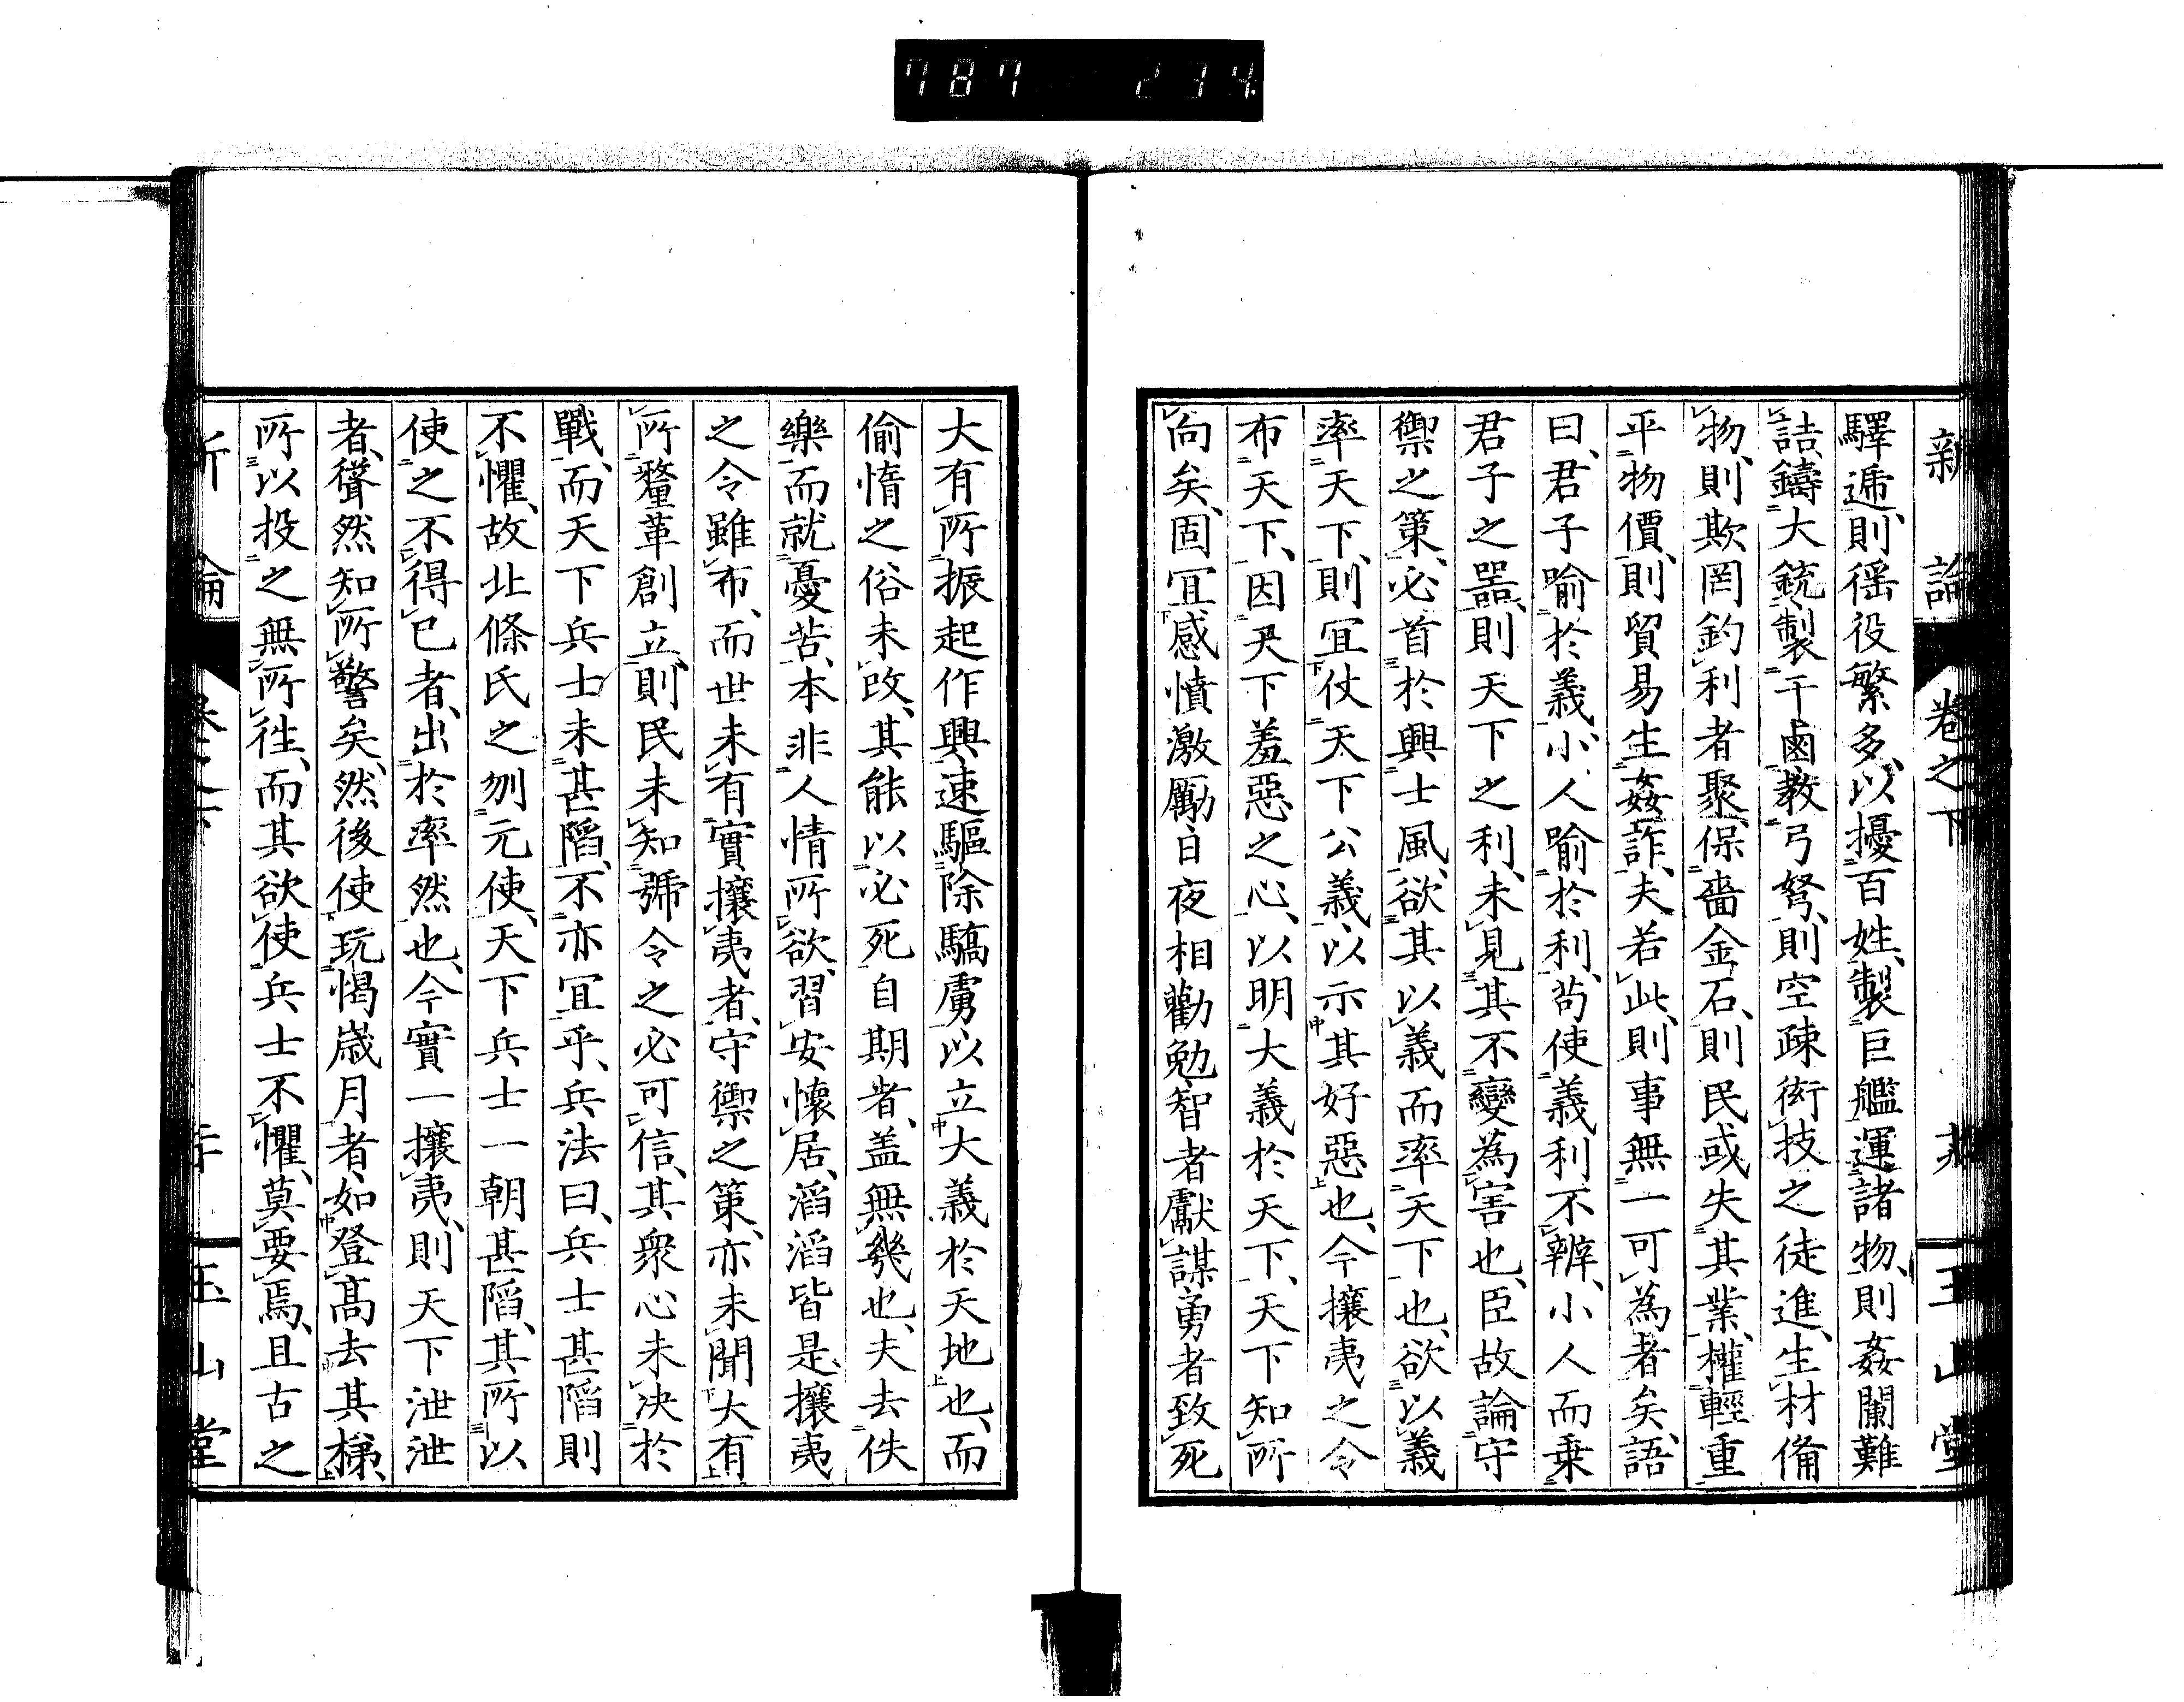 787 234
新論 卷之下 玉山堂
驛遞、則徭役繁多、以擾百姓、製巨艦運諸物、則姦闌難
詰、鑄大銃、製干鹵、敎弓弩、則空疎衒技之徒進、生材備
物、則欺罔釣利者聚、保嗇金石、則民或失其業、權輕重
平物價、則貿易生姦詐、夫若此、則事無一可爲者矣、語
曰、君子喻於義、小人喻於利、苟使義利不辨、小人而乗
君子之噐、則天下之利、未見其不變爲害也、臣故論守
禦之策、必首於興士風、欲其以義而率天下也、欲以義
率天下、則冝仗天下公義、以示其好惡也、今攘夷之令
布天下、因天下羞惡之心、以明大義於天下、天下知所
向矣、固冝感憤激勵日夜相勸勉智者獻謀勇者致死
大有所振起作興、速驅除驕虜以立大義於天地也、而
偷惰之俗未改、其能以必死自期者、盖無幾也、夫去佚
樂而就憂苦、本非人情所欲、習安懷居、滔滔皆是、攘夷
之令雖布、而世未有實攘夷者、守禦之策、亦未聞大有
所釐革創立、則民未知號令之必可信、其衆心未决於
戰、而天下兵士未甚陷、不亦冝乎、兵法曰、兵士甚陷則
不懼、故北條氏之刎元使、天下兵士一朝甚陷、其所以
使之不得已者、出於率然也、今實一攘夷、則天下泄泄
者、聳然知所警矣、然後使玩愒歳月者、如登高去其梯、
所以投之無所徃、而其欲使兵士不懼、莫要焉、且古之
玉山堂